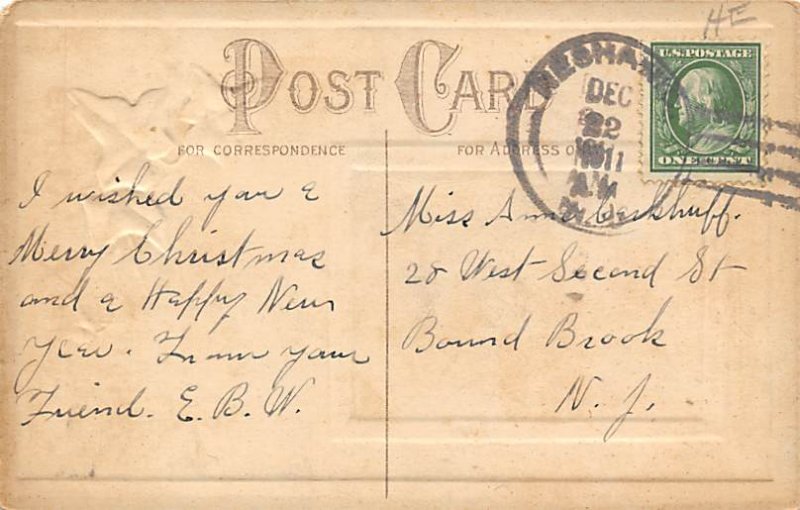 HE
POST CARD
FOR CORRESPONDENCE
FOR ADDRESS O
NESHAN
DEC
22
1911
U.S. POSTAGE
ONE CENT
I wished you a
Merry Christmas
and a Happy New
Year. From your
Friend. E. B. W.
Miss Anna
28 West Second St
Bound Brook
N. J.